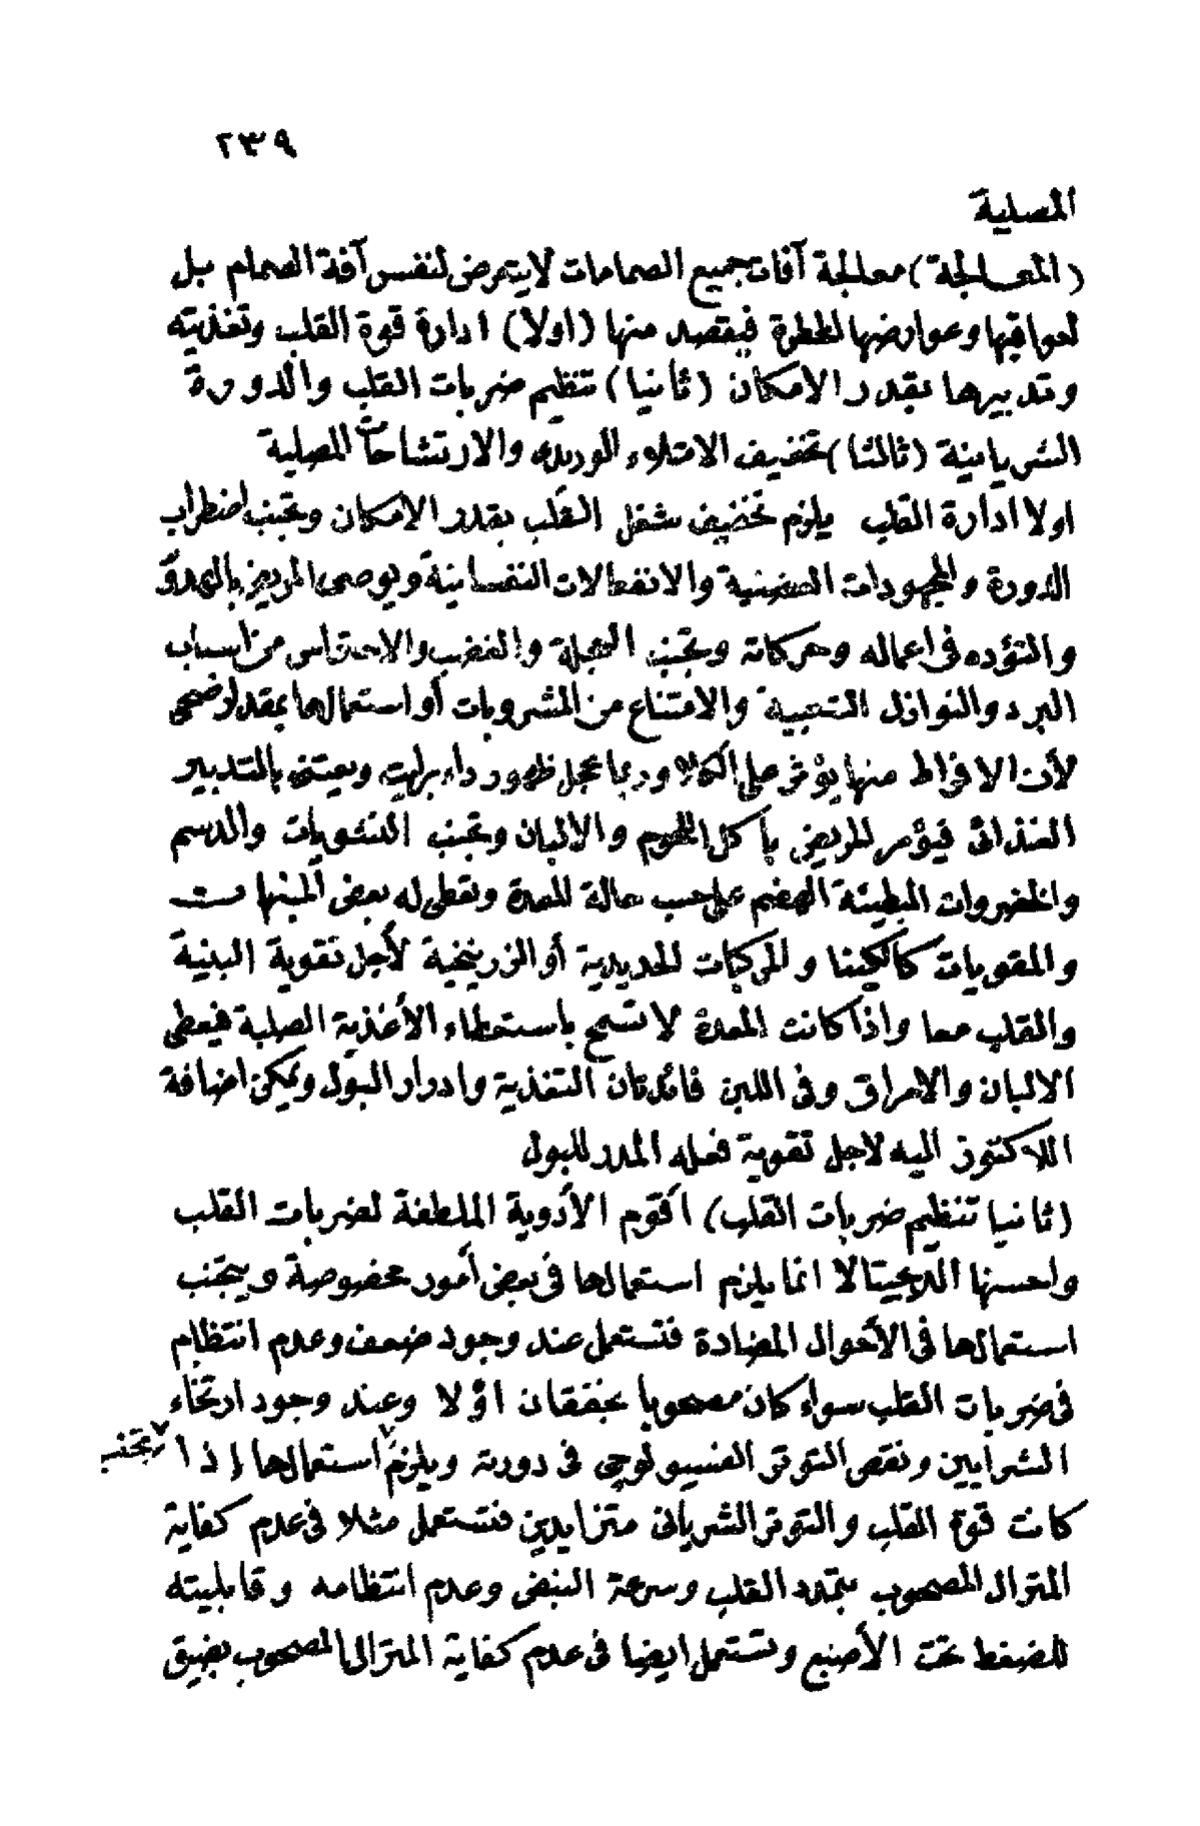 ٢٣٩
المصلية
(المعالجة) معالجة آفات جميع الصمامات لا يتعرض لنفس آفة الصمام بل
لعواقبها وعوارضها الخطرة فيقصد منها (اولا) ادارة قوة القلب وتغذيته
وتدبيرها بقدر الامكان (ثانيا) تنظيم ضربات القلب والدورة
الشريانية (ثالثا) تخفيف الامتلاء الوريدى والارتشاحات المصلية
اولا ادارة القلب يلزم تخفيف شغل القلب بقدر الامكان وتجنب اضطراب
الدورة والمجهودات العضلية والانفعالات النفسانية ويوصى المريض بالهدوّ
والتؤده فى اعماله وحركاته وتجنب العجلة والغضب والاحتراس من اسباب
البرد والنوازل الشعبية والامتناع من المشروبات أو استعمالها بمقدار ضحى
لأن الافراط منها يؤثر على الكلا وربما عجل ظهور داء برايت ويعتنى بالتدبير
الغذائى فيؤمر المريض بأكل اللحوم والالبان وتجنب النشويات والدسم
والخضروات البطيئة الهضم على حسب حالة المعدة وتعطى له بعض المنبهات
والمقويات كالكينا والمركبات الحديدية أو الزرنيخية لأجل تقوية البنية
والقلب معا واذا كانت المعدة لا تسمح باستعطاء الأغذية الصلبة فيعطى
الالبان والامراق وفى اللبن فائدتان التغذية وادرار البول ويمكن اضافة
اللاكتوز اليه لاجل تقوية فعله المدر للبول
(ثانيا تنظيم ضربات القلب) أقوم الأدوية الملطفة لضربات القلب
واحسنها الديجيتالا انما يلزم استعمالها فى بعض أمور مخصوصة ويتجنب
استعمالها فى الأحوال المضادة فتستعمل عند وجود ضعف وعدم انتظام
فى ضربات القلب سواء كان مصحوبا بخفقان اؤلا وعند وجود ارتخاء
الشرايين ونقص التوتر الفسيولوچى فى دورته ويلزم استعمالها إذا
٧ تجنب
كانت قوة القلب والتوتر الشريانى متزايدين فتستعمل مثلا فى عدم كفاية
المترال المصحوب بتمدد القلب وسرعة النبض وعدم انتظامه وقابليته
للضغط تحت الأصبع وتستعمل ايضا فى عدم كفاية المترالى المصحوب بضيق